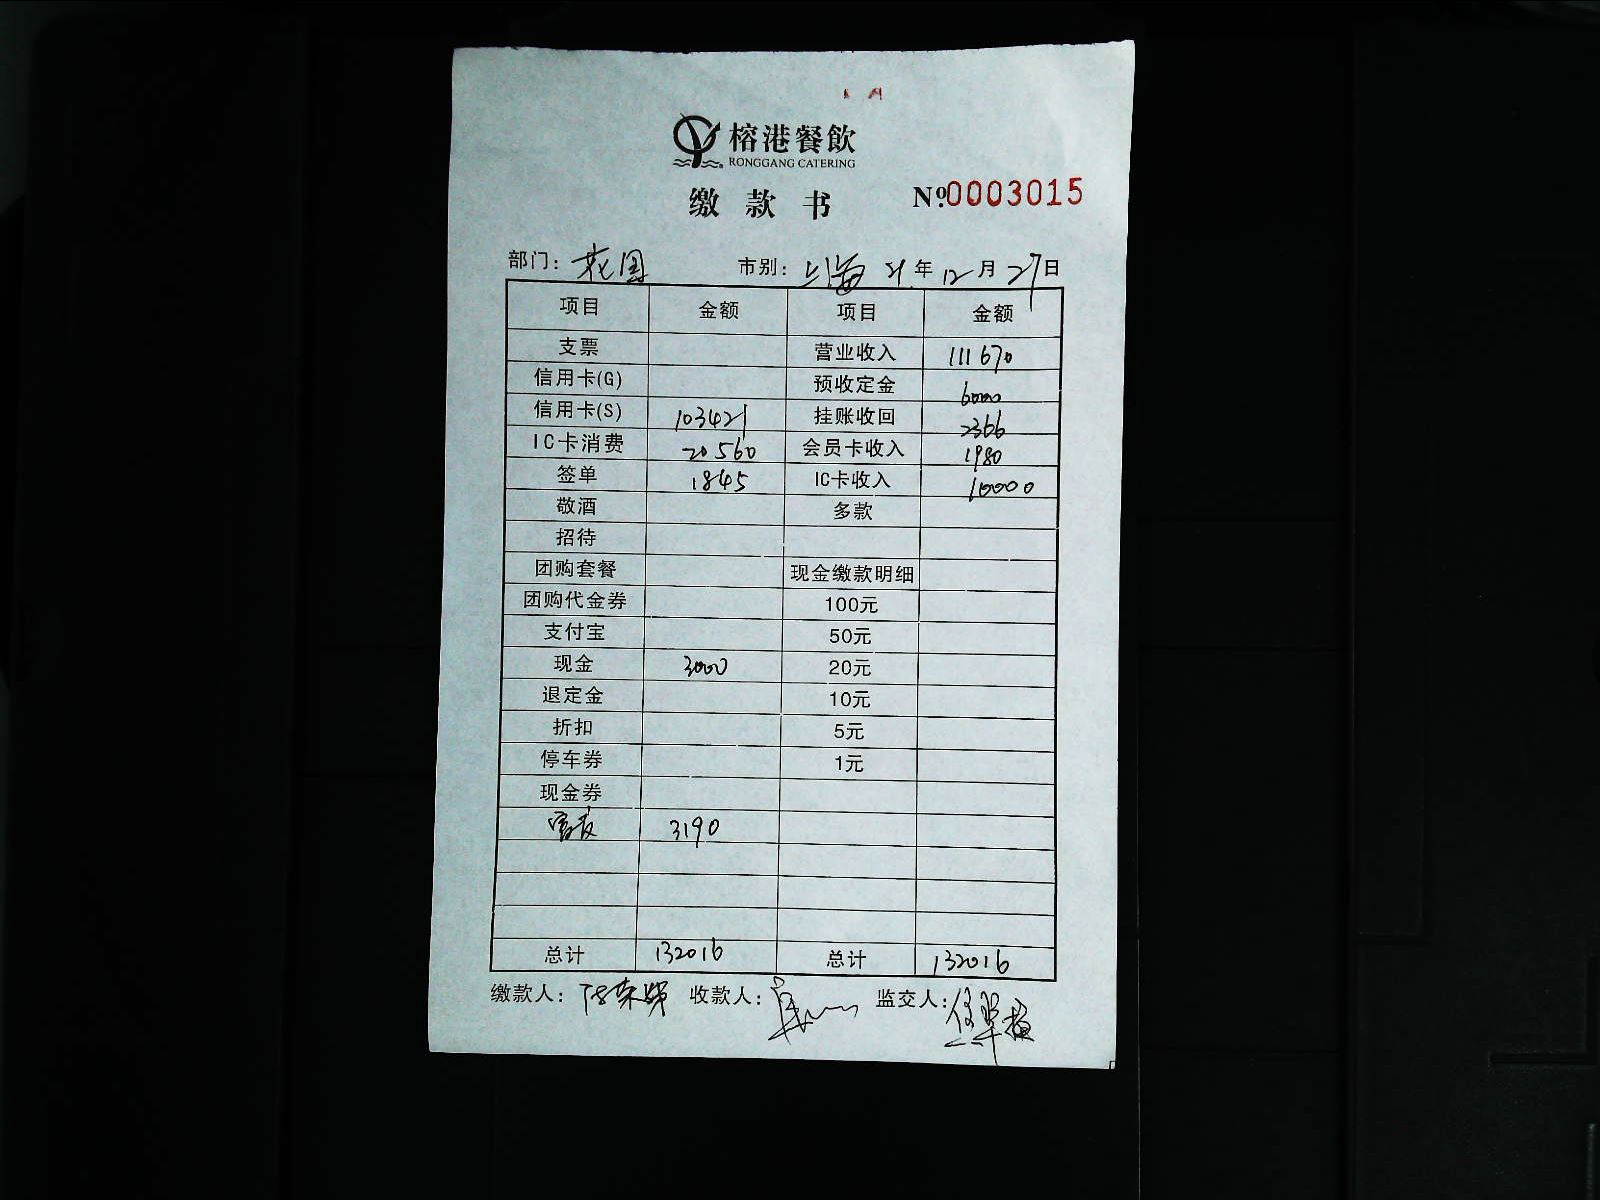 榕港餐飲
RONGGANG CATERING
缴款书 №0003015
部门：花园 市别：上海 21年12月27日
项目 金额 项目 金额
支票 营业收入 111670
信用卡(G) 预收定金 6000
信用卡(S) 103421 挂账收回 2366
IC卡消费 20560 会员卡收入 1980
签单 1845 IC卡收入 10000
敬酒 多款
招待
团购套餐 现金缴款明细
团购代金券 100元
支付宝 50元
现金 3000 20元
退定金 10元
折扣 5元
停车券 1元
现金券
3190
总计 132016 总计 132016
缴款人： 收款人： 监交人：